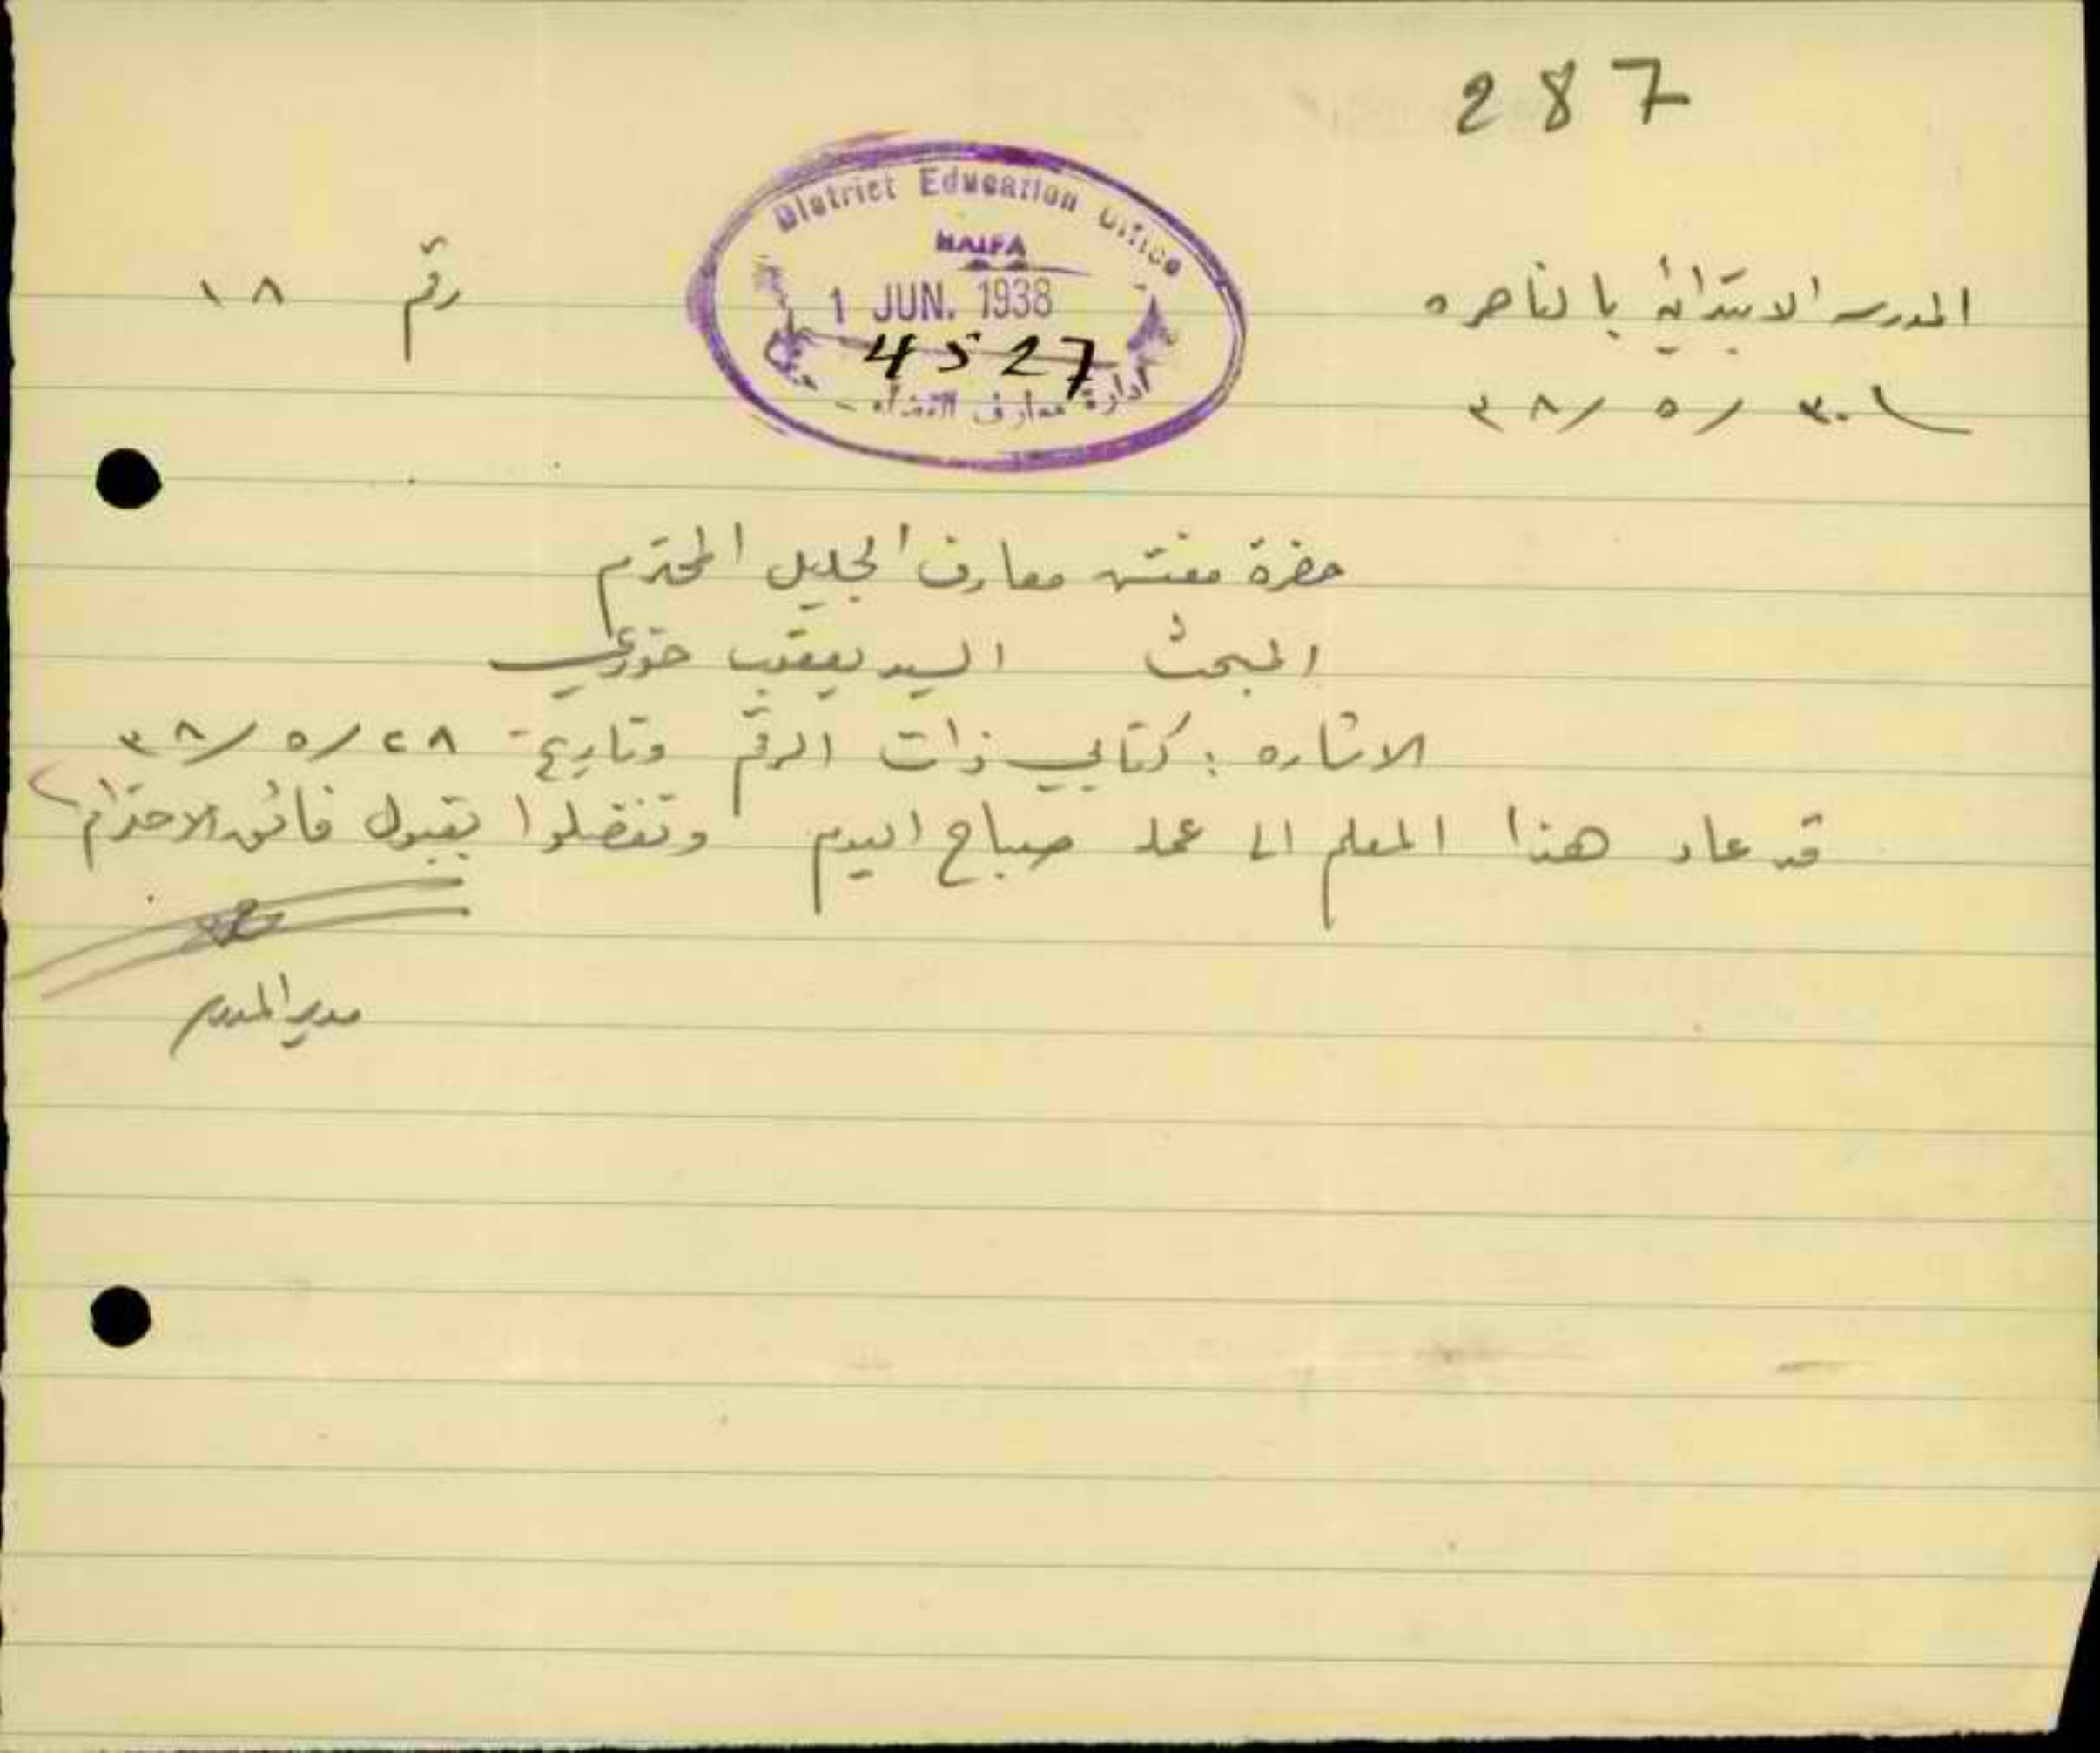 287
District Education Office
HAIFA
1 JUN. 1938
4527
ادارة معارف القضاء - حيفا
المدرسه الابتدائية بالناصره
رقم ١٨
٣٠/٥/٣٨
حضرة مفتش معارف الجليل المحترم
المبحث السيد يعقوب خوري
الاشاره : كتابي ذات الرقم وتاريخ ٢٨/٥/٣٨
قد عاد هذا المعلم الى عمله صباح اليوم وتفضلوا بقبول فائق الاحترام
مدير المدرسه